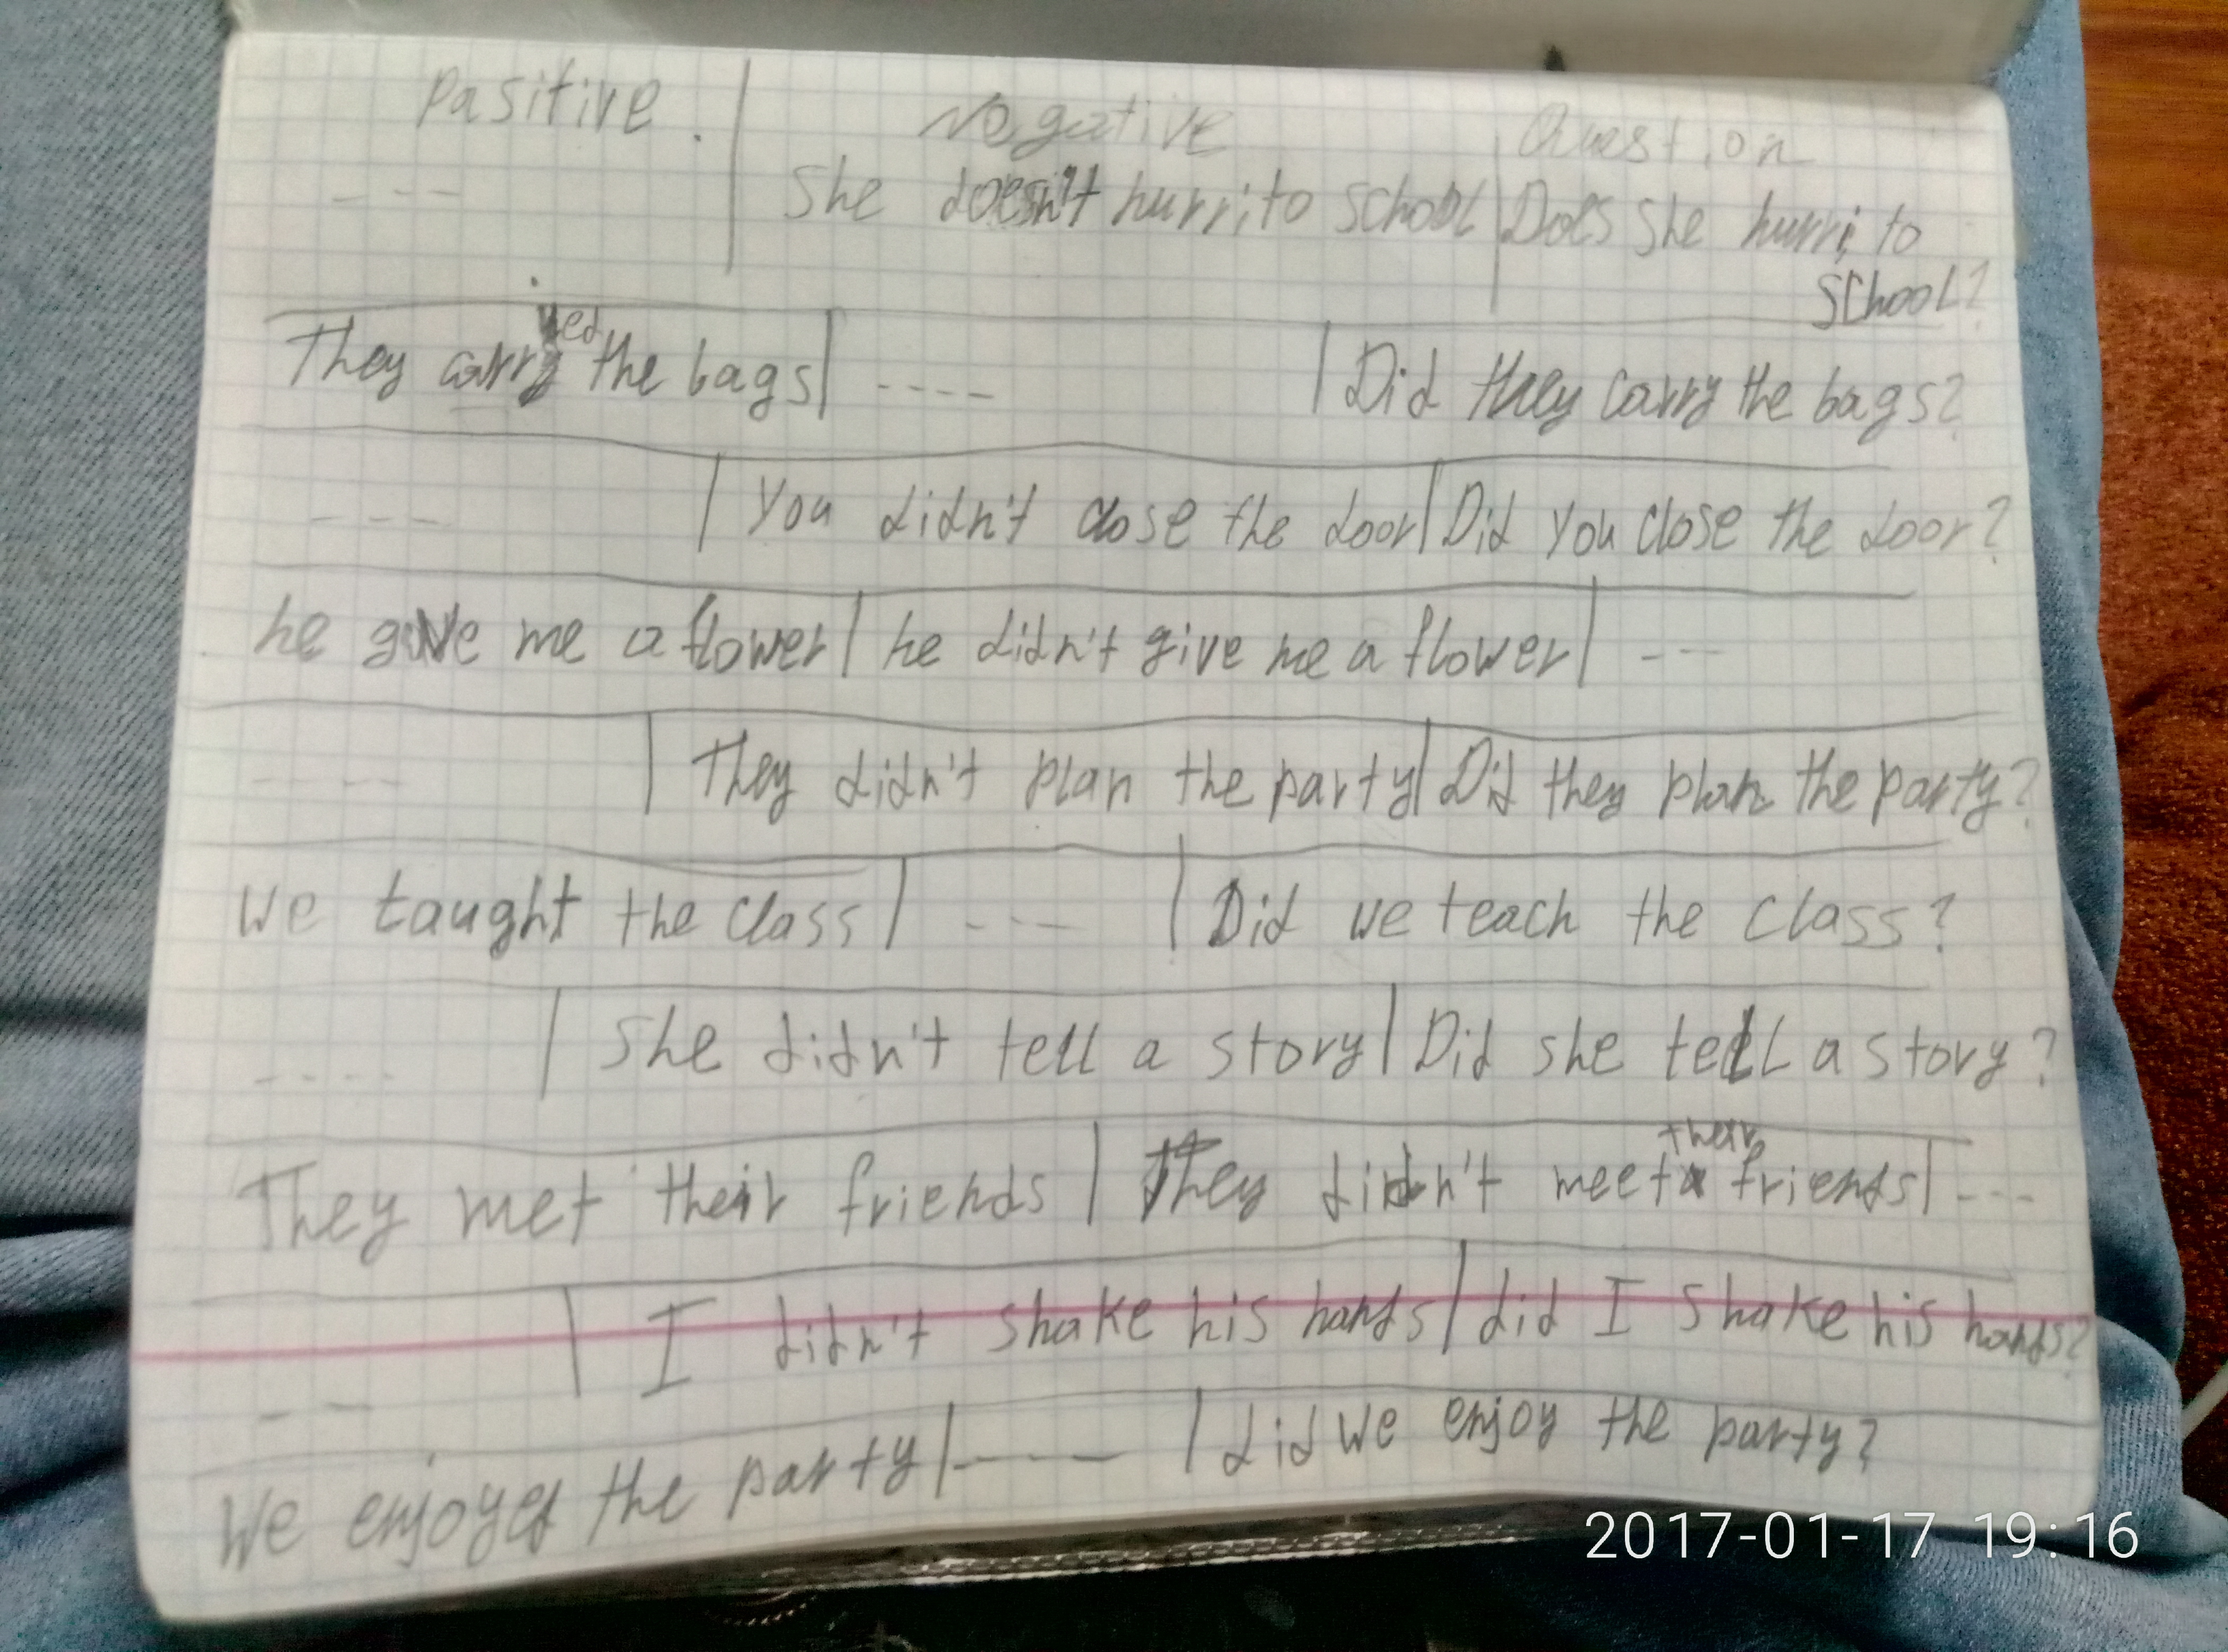 Pasitive. | Negative | Question
--- | She doesn't hurri to school | Does she hurri to school?
They carried the bags | ---- | Did they carry the bags?
--- | You didn't close the door | Did you close the door?
he gave me a flower | he didn't give me a flower | ---
---- | They didn't plan the party | Did they plan the party?
we taught the class | --- | Did we teach the class?
---- | She didn't tell a story | Did she tell a story?
They met their friends | They didn't meet their friends | ---
-- | I didn't shake his hands | did I shake his hands?
We enjoyed the party | ---- | did we enjoy the party?
2017-01-17 19:16